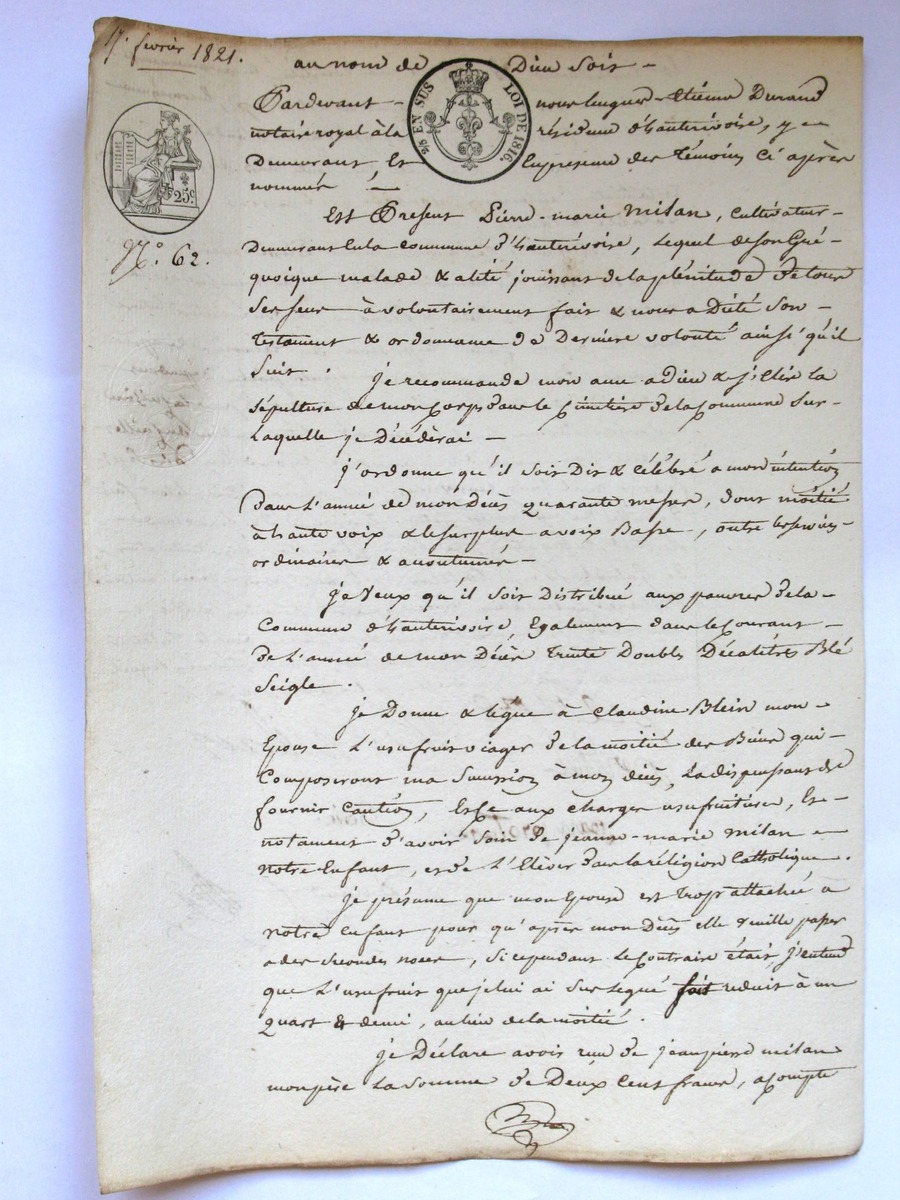 17. fevrier 1821.
au nom de Dieu soit -
25 EN SUS LOI DE 1816.
Pardevant - nous Etiénne Durand
notaire royal à la résidence d'hauterivoire, y -
Demeurant Et En presence des témoins Ci après
nommés -
25c
N.o 62.
Est Présent Pierre-marie milan, Cultivateur -
Demeurant En la Commune d'hauterivoire, Lequel de son Gré -
quoique malade & alité jouissant de la plénitude de tous
Ses sens à volontairement fait & nous a Dicté Son -
testament & ordonnance de Derniere volonté ainsi qu'il
Suit.
je recommande mon ame a Dieu & j'Elis la
Sépulture de mon Corps dans le Cimetière de la Commune Sur -
Laquelle je Décèderai -
j'ordonne qu'il soit Dit & Célébré a mon intention
Dans L'année de mon Décès quarante messes, dont moitié
à haute voix & le surplus a voix Basse, outre les services -
ordinaires & acoutumés -
je Veux qu'il Soit Distribué aux pauvres de la -
Commune d'hauterivoire, Egalement dans le Courant -
de L'année de mon Décès trente Doubles Décalitres Blé
Seigle.
je Donne & lègue à Claudine Blein mon -
Epouse L'usufruit viager de la moitié des Biens qui -
Composeront ma Succession à mon décès, La dispensant de
fournir Caution, Et Ce aux charges usufruitieres, Et -
notament d'avoir Soin de jeanne-marie milan -
notre Enfant, et de L'Elever dans la réligion Catholique.
je présume que mon Epouse est trop attachée a
notre Enfant pour qu'après mon Décès elle veuille passer
a des secondes noces, Si cependant Le Contraire était, j'entend
que L'usufruit que je lui ai Sus Légué soit reduit à un
quart & demi, au lieu de la moitié.
je Déclare avoir reçu de jean pierre milan
mon père La Somme de Deux Cent francs, a Compte